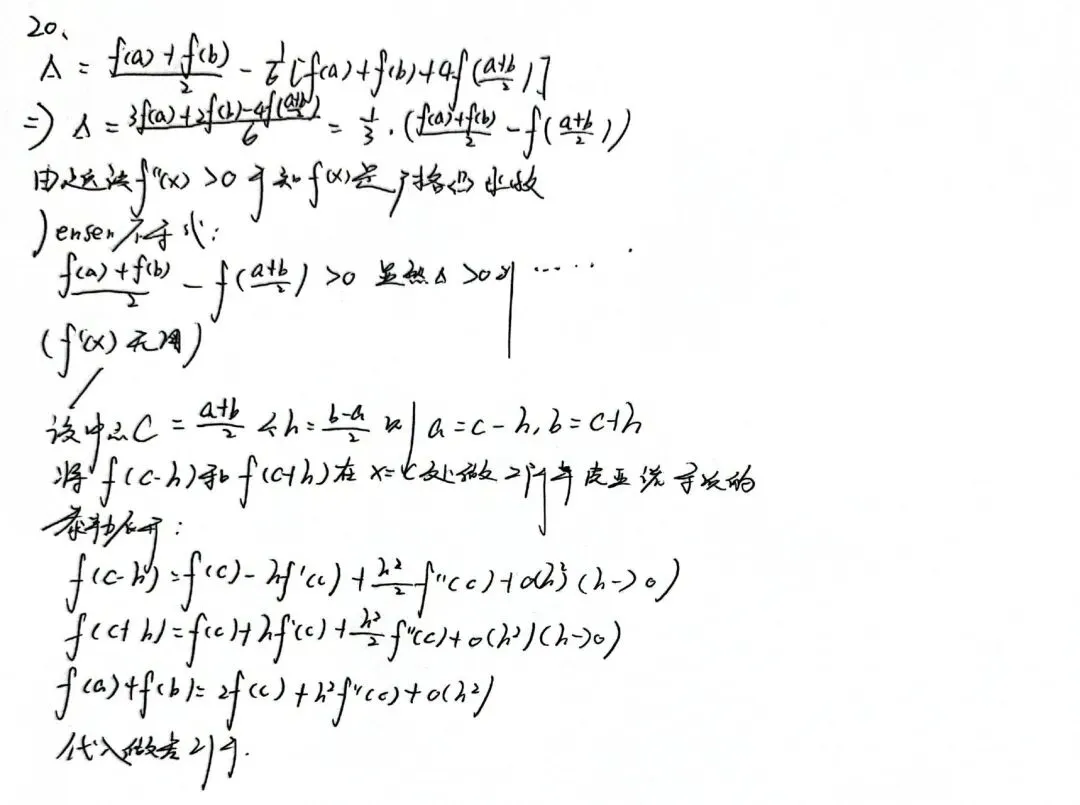 20、
Δ = (f(a)+f(b))/2 - 1/6[f(a)+f(b)+4f((a+b)/2)]
=) Δ = (3f(a)+2f(b)-4f((a+b)/2))/6 = 1/3·((f(a)+f(b))/2 - f((a+b)/2))
由 f''(x)>0 可知 f(x)是严格凹函数
Jensen不等式:
(f(a)+f(b))/2 - f((a+b)/2) >0 显然Δ>0 则 ......
(f'(x)无用)
设中点C = (a+b)/2 令h = (b-a)/2 则 a=c-h, b=c+h
将f(c-h)和f(c+h)在x=c处做2阶带皮亚诺余项的
泰勒展开:
f(c-h)=f(c)-hf'(c)+h²/2 f''(c)+o(h²)(h->0)
f(c+h)=f(c)+hf'(c)+h²/2 f''(c)+o(h²)(h->0)
f(a)+f(b)=2f(c)+h²f''(c)+o(h²)
代入做差即可.